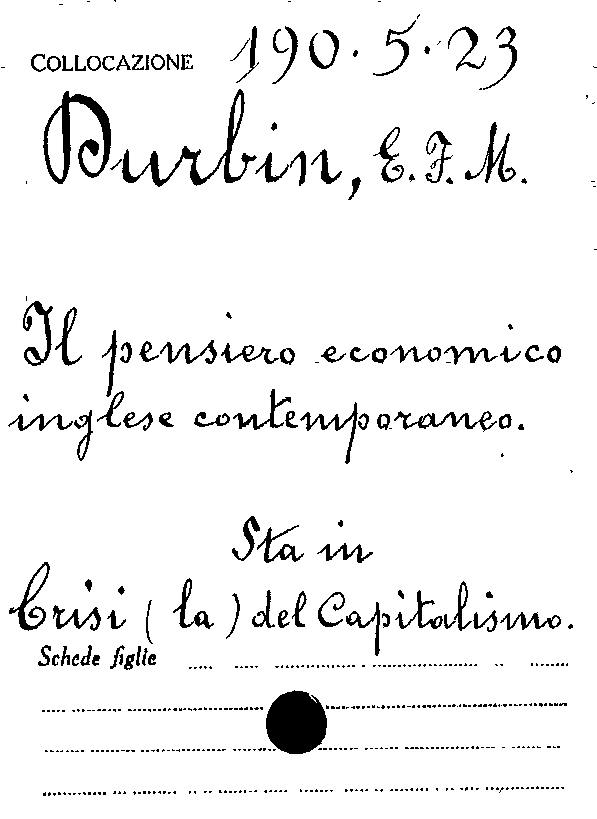 COLLOCAZIONE 190.5.23
Durbin, E. F. M.
Il pensiero economico
inglese contemporaneo.
Sta in
Crisi (la) del Capitalismo.
Schede figlie